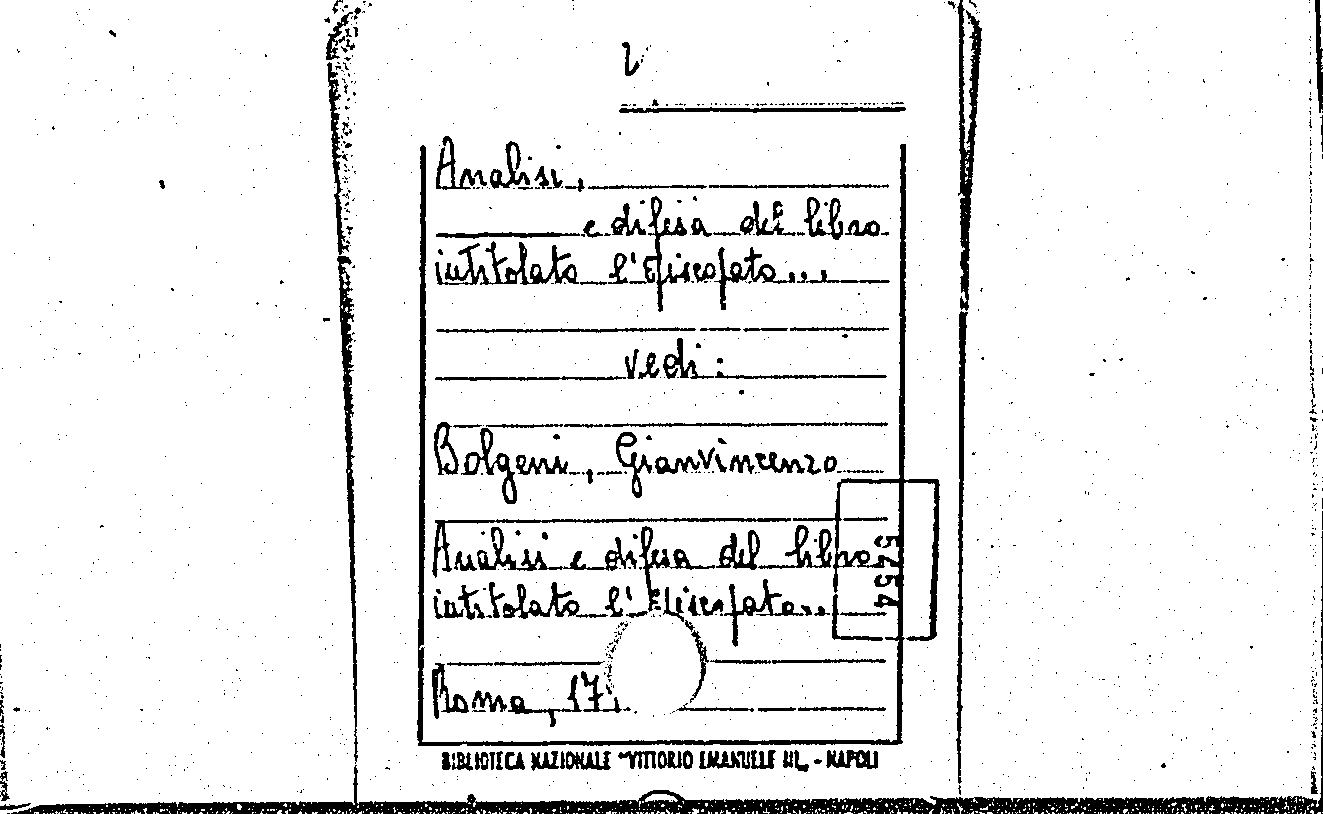 V
Analisi,
e difesa del libro
intitolato l'Episcopato...
vedi:
Bolgeni, Gianvincenzo
Analisi e difesa del libro
intitolato l'Episcopato...
5454
Roma, 17
BIBLIOTECA NAZIONALE "VITTORIO EMANUELE III„ - NAPOLI